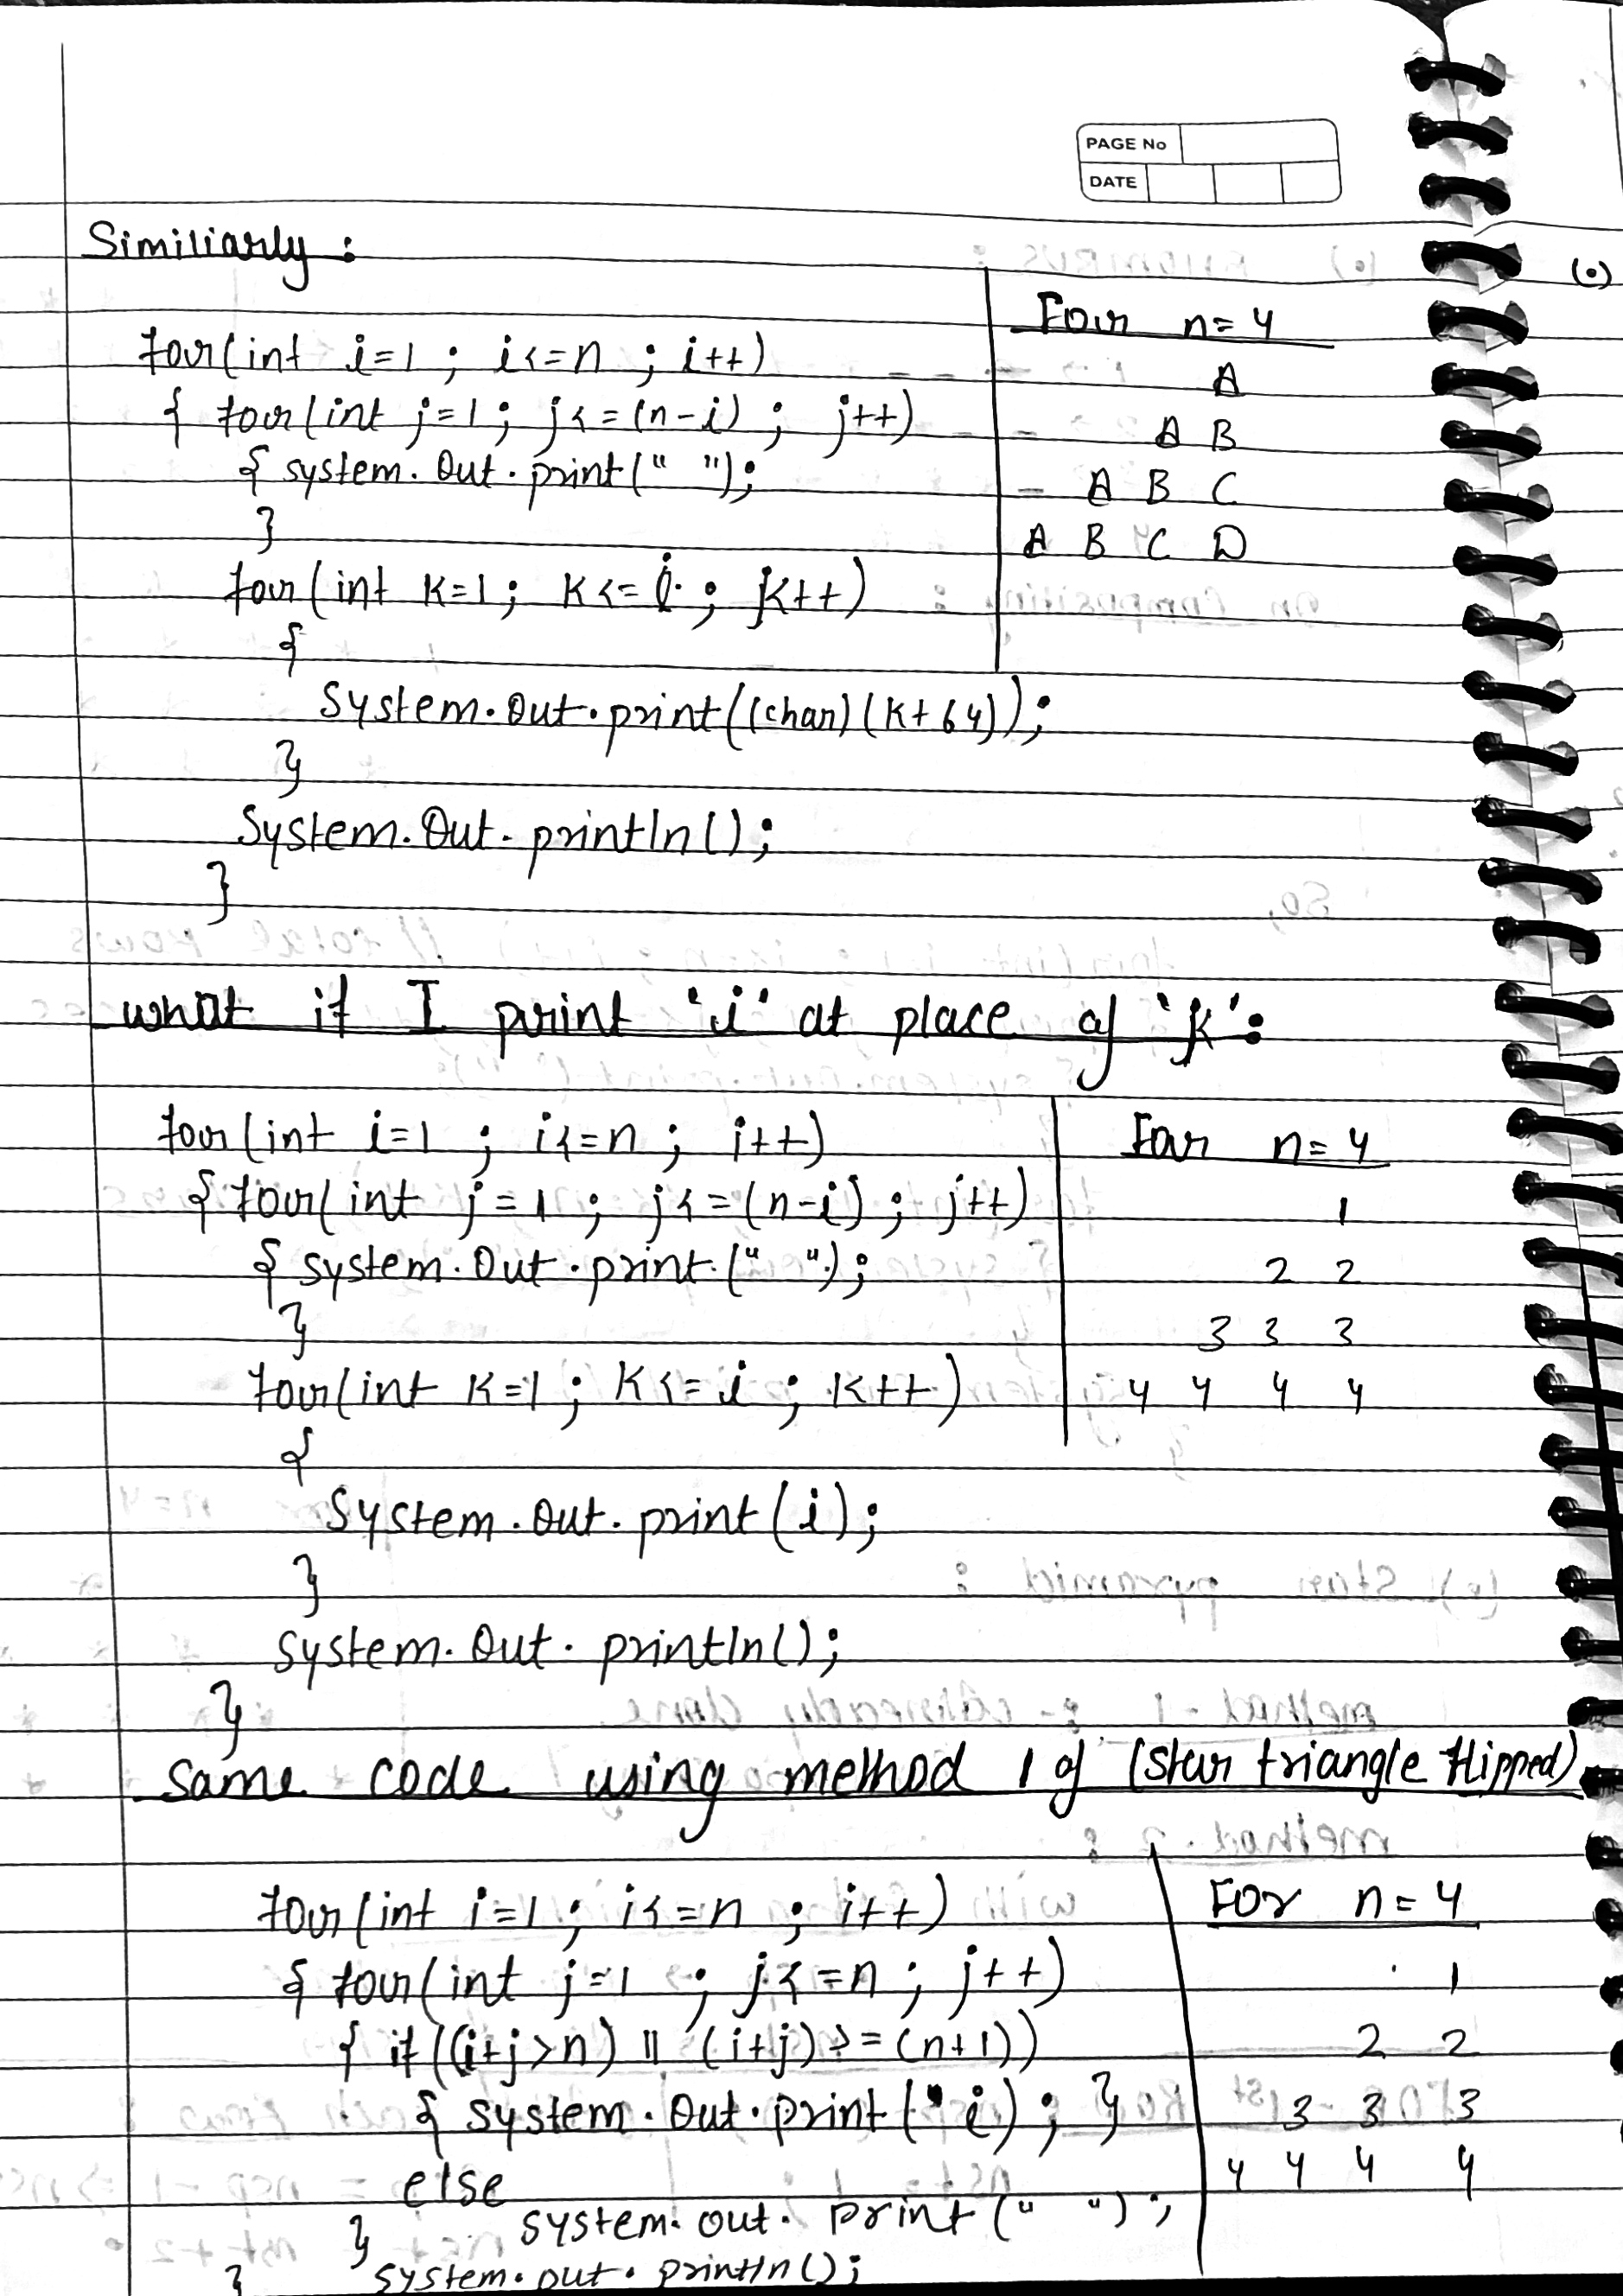 PAGE No
DATE
Similiarly :
for(int i=1 ; i<=n ; i++)
{ for(int j=1 ; j<=(n-i) ; j++)
{ system.out.print(" ");
}
for(int k=1 ; k<=i ; k++)
{
System.out.print((char)(k+64));
}
System.out.println();
}
For n=4
A
A B
A B C
A B C D
what if I print 'i' at place of 'k' :
for(int i=1 ; i<=n ; i++)
{ for(int j=1 ; j<=(n-i) ; j++)
{ system.out.print(" ");
}
for(int k=1 ; k<=i ; k++)
{
System.out.print(i);
}
system.out.println();
}
For n=4
1
2 2
3 3 3
4 4 4 4
same code using method 1 of (star triangle flipped)
for(int i=1 ; i<=n ; i++)
{ for(int j=1 ; j<=n ; j++)
{ if((i+j>n) || (i+j)>=(n+1))
{ system.out.print(i); }
else
system.out.print(" ");
}
system.out.println();
}
For n=4
1
2 2
3 3 3
4 4 4 4
(•)